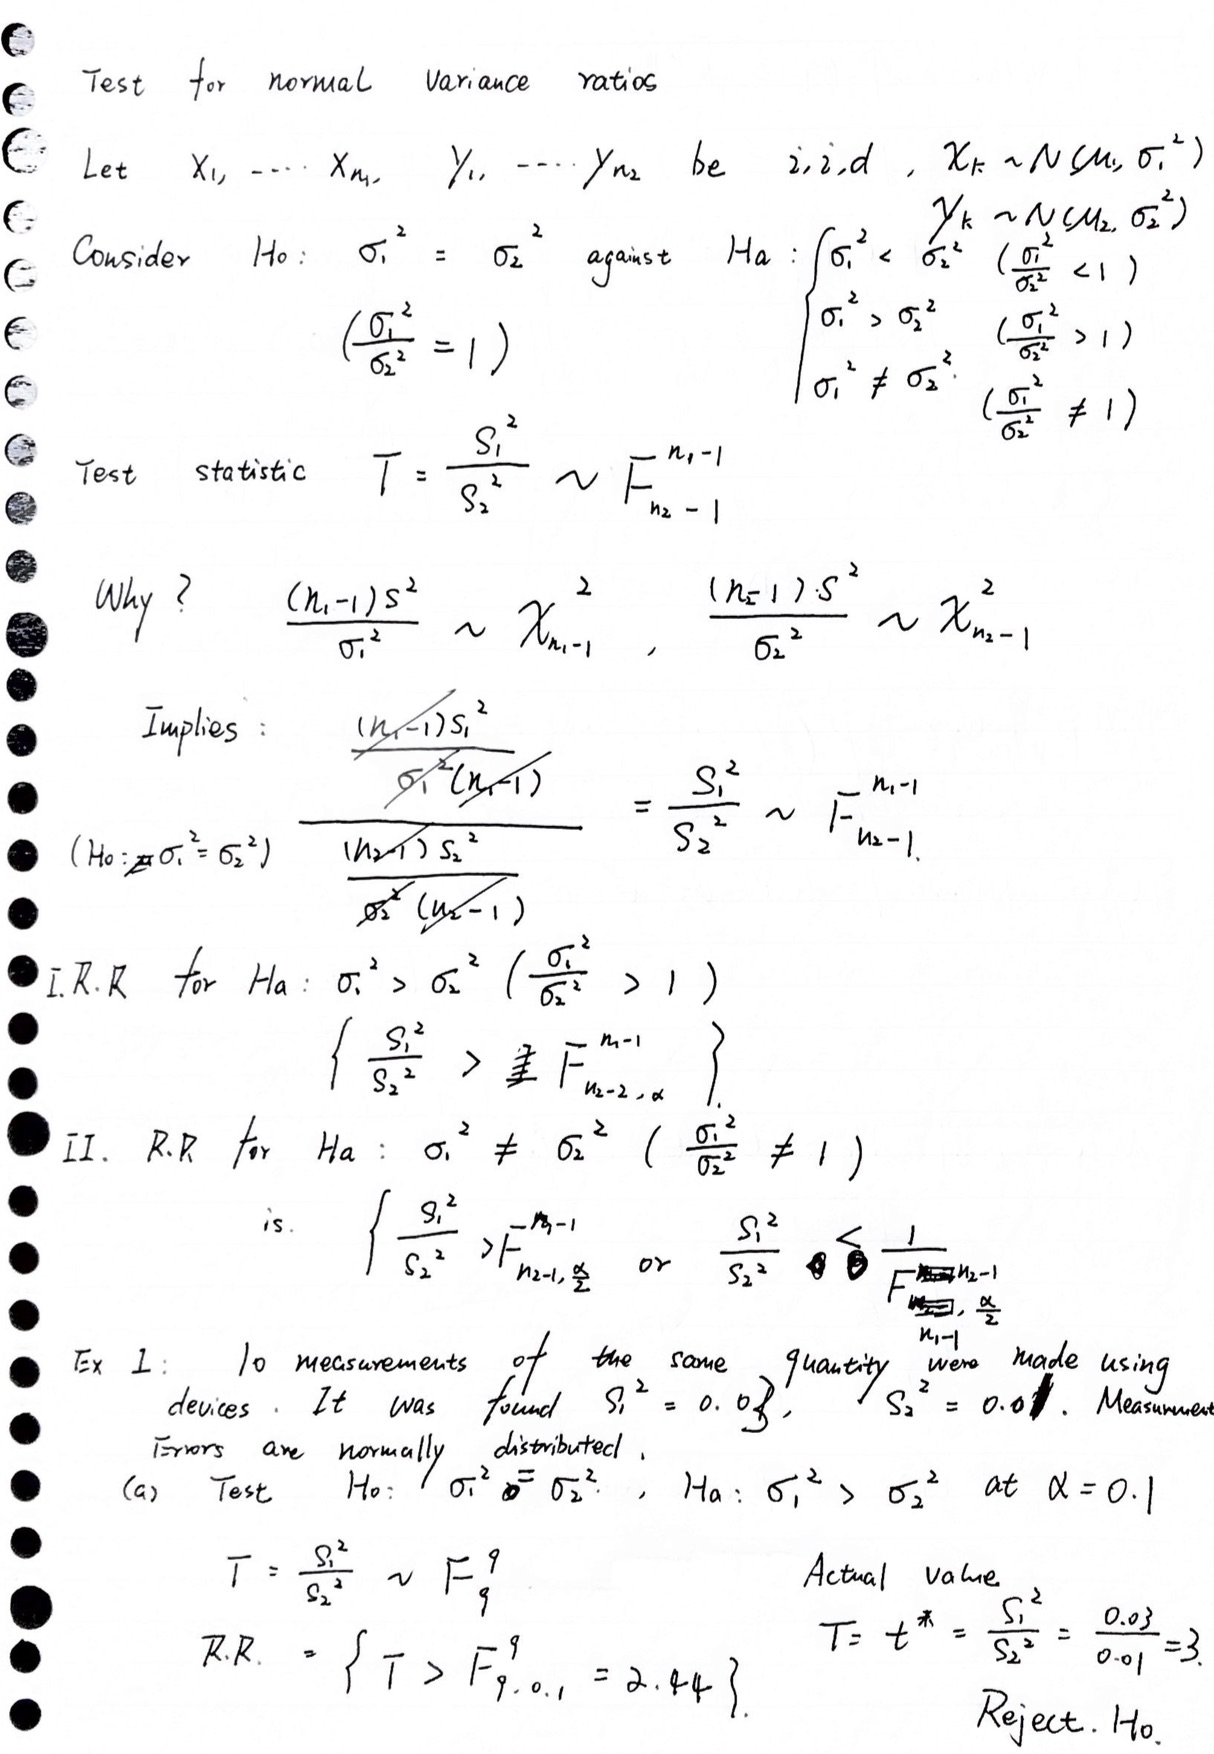 Test for normal variance ratios
Let X₁, ---- Xₙ₁, Y₁, ---- Yₙ₂ be i,i,d , Xₖ ~ N(μ₁, σ₁²)
Yₖ ~ N(μ₂, σ₂²)
Consider Ho: σ₁² = σ₂² against Ha: { σ₁² < σ₂² (σ₁²/σ₂² < 1)
(σ₁²/σ₂² = 1) σ₁² > σ₂² (σ₁²/σ₂² > 1)
σ₁² ≠ σ₂². (σ₁²/σ₂² ≠ 1)
Test statistic T = S₁²/S₂² ~ F^{n₁-1}_{n₂-1}
Why? (n₁-1)S²/σ₁² ~ χ²_{n₁-1} , (n₂-1)·S²/σ₂² ~ χ²_{n₂-1}
Implies: (n₁-1)S₁² / σ₁²(n₁-1)
(Ho: σ₁² = σ₂²) ———— = S₁²/S₂² ~ F^{n₁-1}_{n₂-1}.
(n₂-1)S₂² / σ₂²(n₂-1)
I. R.R for Ha: σ₁² > σ₂² (σ₁²/σ₂² > 1)
{ S₁²/S₂² > F^{n₁-1}_{n₂-2, α} }.
II. R.R for Ha: σ₁² ≠ σ₂² (σ₁²/σ₂² ≠ 1)
is. { S₁²/S₂² > F^{n₁-1}_{n₂-1, α/2} or S₁²/S₂² < 1/F^{n₂-1}_{n₁-1, α/2}
Ex 1: 10 measurements of the same quantity were made using
devices. It was found S₁² = 0.03, S₂² = 0.01. Measurement
Errors are normally distributed.
(a) Test Ho: σ₁² = σ₂². , Ha: σ₁² > σ₂² at α = 0.1
T = S₁²/S₂² ~ F^9_9 Actual value
T = t* = S₁²/S₂² = 0.03/0.01 = 3.
R.R. = { T > F^9_{9, 0.1} = 2.44 }.
Reject. Ho.